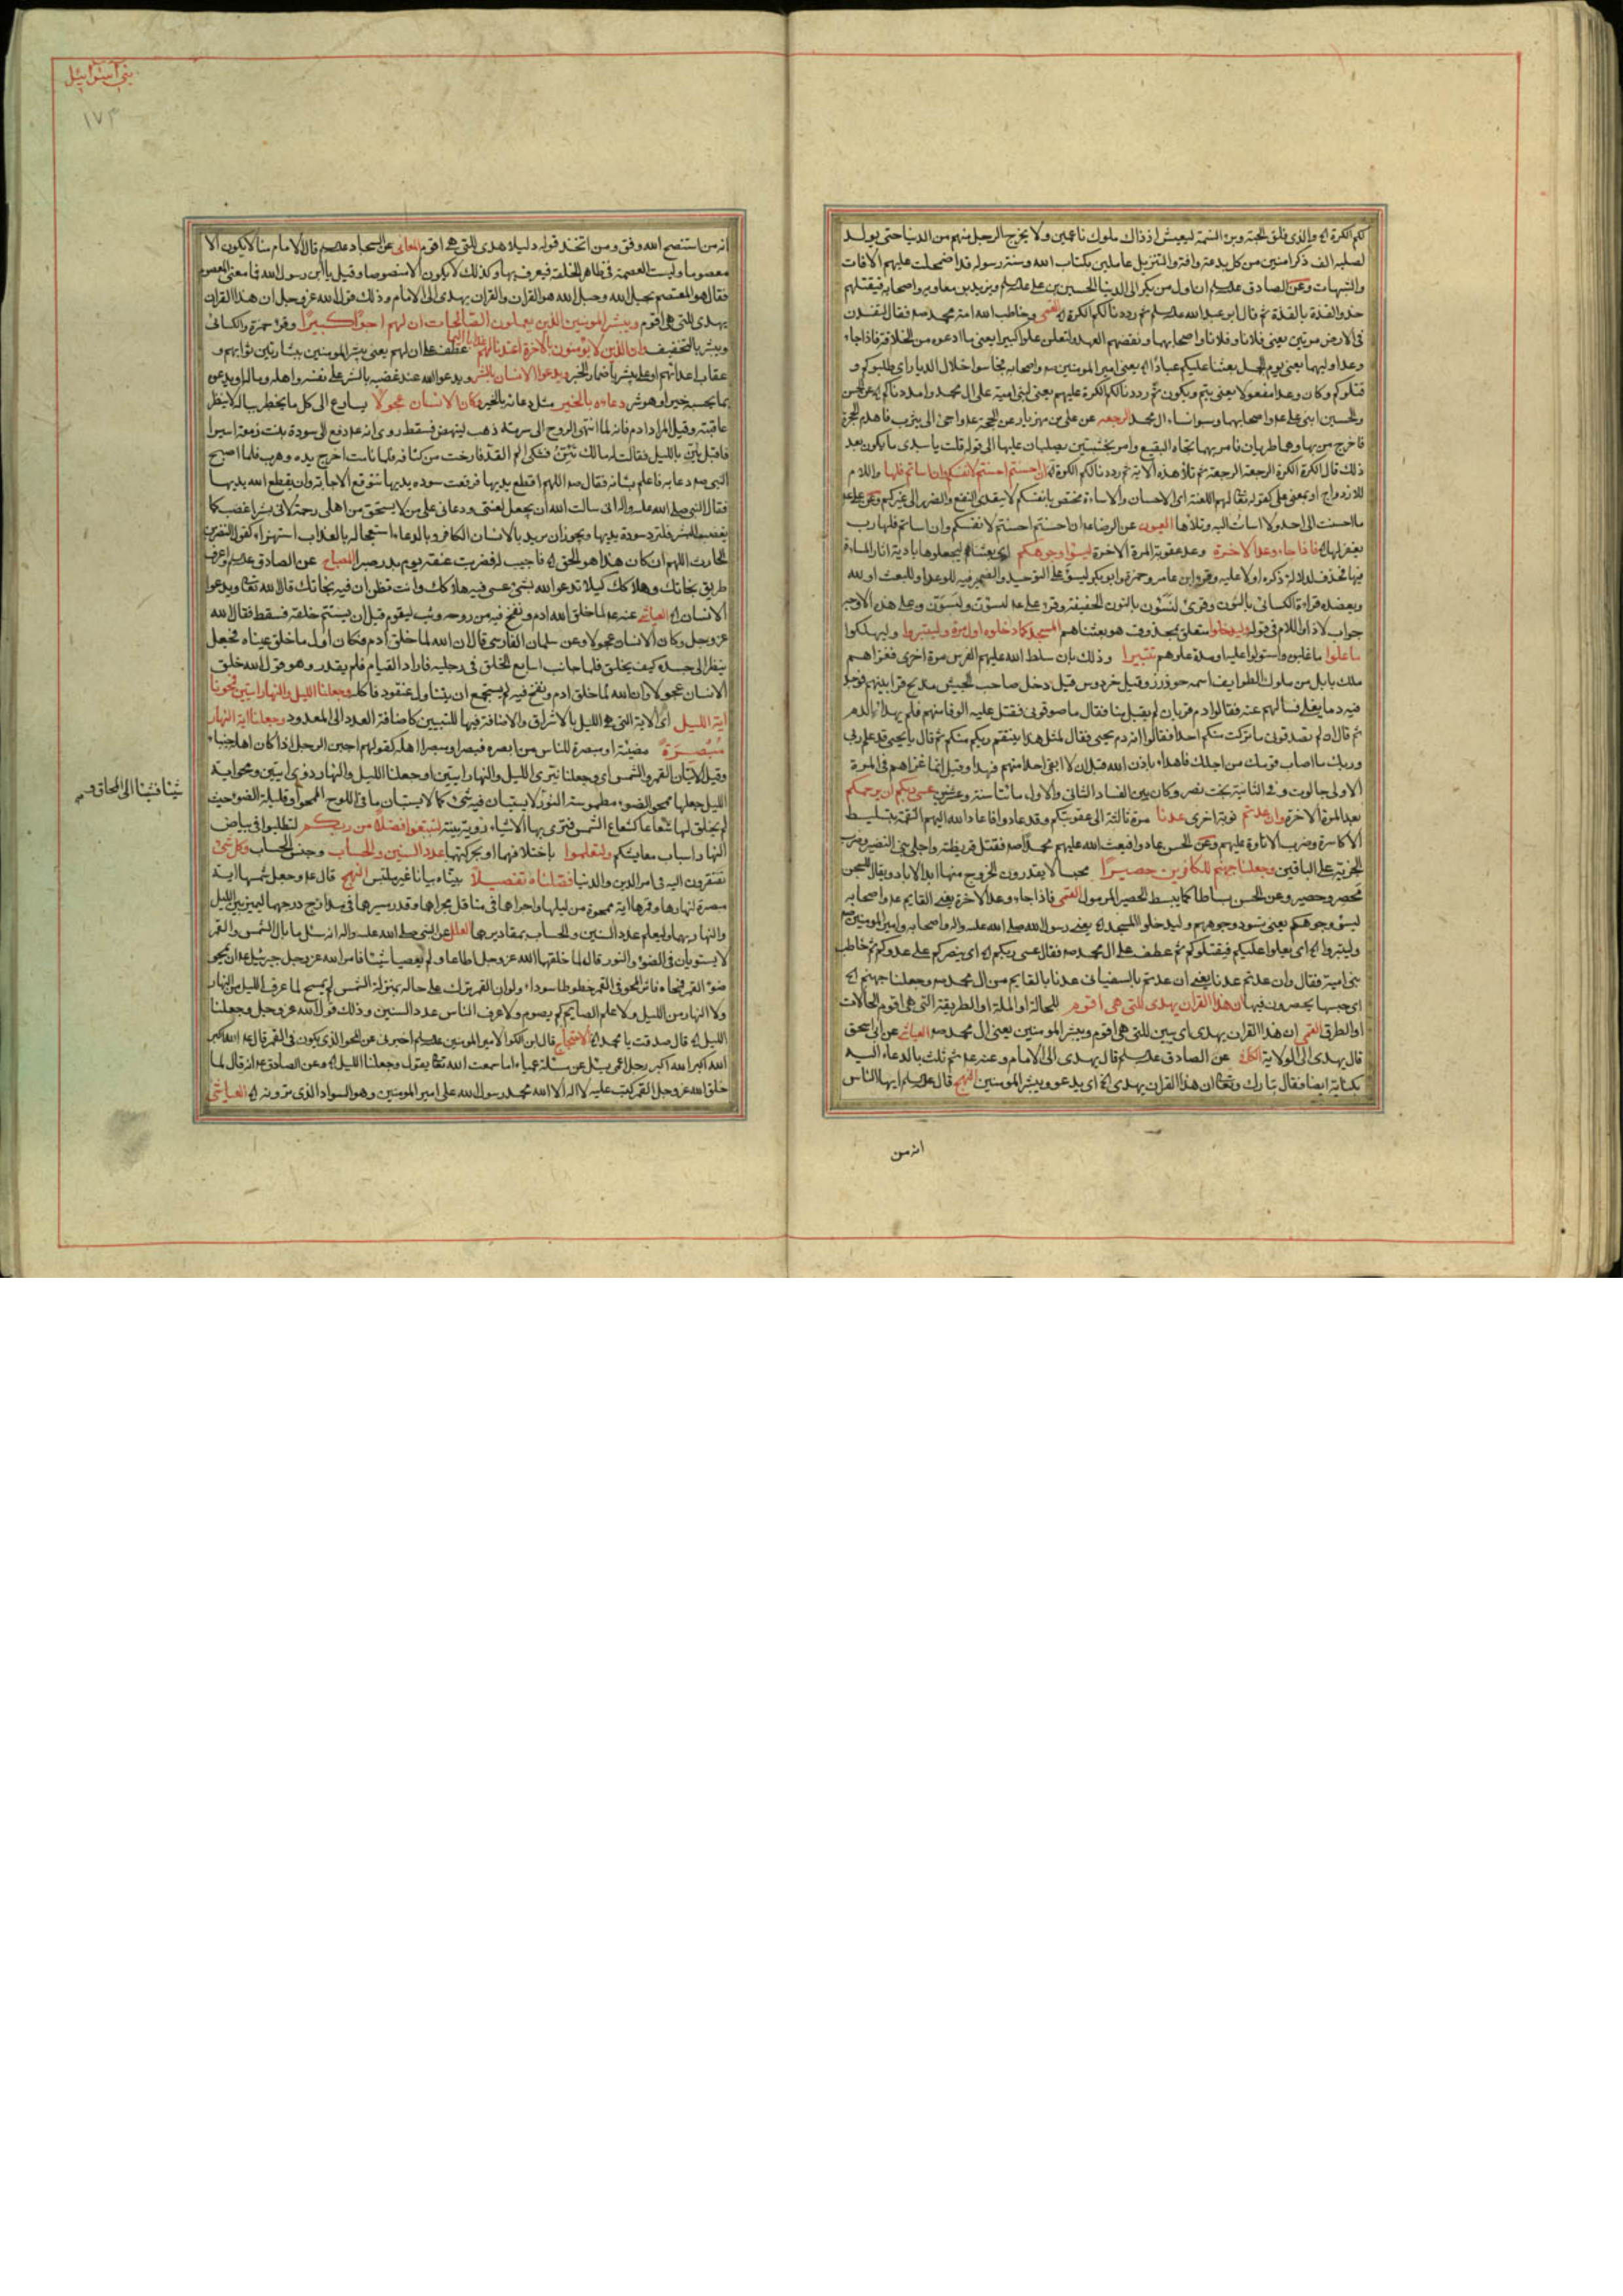 لكم الكرة الخ والذي فلق الحبة وبرء النسمة ليعيش اذ ذاك ملوك ناعمين ولا يخرج الرجل منهم من الدنيا حتى يولد
لصلبه الف ذكر امنين من كل بدعة وافة والتنزيل عاملين بكتاب الله وسنة رسوله قد اضمحلت عليهم الافات
والشبهات وعن الصادق ان اول من يكر الى الدنيا الحسين بن علي ويزيد بن معاويه واصحابه فيقتلهم
حذو القذة بالقذة ثم قال ابو عبد الله ثم رددنا لكم الكرة الخ القمي وخاطب الله امة محمد صه فقال لتفسدن
في الارض مرتين يعني فلانا وفلانا واصحابهما ونقضهم العهد ولتعلن علوا كبيرا يعني ما ادعوه من الخلافة فاذا جاء
وعد اوليهما يعني يوم الجمل بعثنا عليكم عبادا الخ يعني امير المومنين واصحابه فجاسوا خلال الديار اي طلبوكم و
قتلوكم وكان وعدا مفعولا يعني يتم ويكون ثم رددنا لكم الكرة عليهم يعني لبني امية على ال محمد وامددناكم الخ
والحسين ابني علي واصحابهما وسبوا نساء ال محمد الرجعه عن علي بن مهزيار عن الحجة واجئ الى يثرب فاهدم الحجرة
فاخرج من بها وهما طريان فامر بهما تجاه البقيع وامر بخشبتين يصلبان عليها الى قوله قلت يا سيدي ما يكون بعد
ذلك قال الكرة الكرة الرجعة الرجعة ثم تلا هذه الاية ثم رددنا لكم الكرة الخ ان احسنتم احسنتم لانفسكم وان اساتم فلها واللام
للازدواج او بمعنى على كقوله تعالى لهم اللعنة اي الاحسان والاساءة مختص بانفسكم لا يتعدى النفع والضرر الى غيركم وعن علي
ما احسنت الى احد ولا اسات اليه وتلاها العيون عن الرضا ان احسنتم احسنتم لانفسكم وان اساتم فلها رب
يغفر لها الخ فاذا جاء وعد الاخرة وعد عقوبة المرة الاخرة ليسوؤا وجوهكم اي بعثناهم ليجعلوها بادية اثار المساءة
فيها فحذف لدلالة ذكره اولا عليه وقرء ابن عامر وحمزة وابو بكر ليسوء على التوحيد والضمير فيه للوعد او للبعث او لله
ويعضده قراءة الكسائي بالنون وقرئ لنسؤن بالنون الخفيفة وعلى هذه الاوجه
جواب لاذا واللام في قوله وليدخلوا متعلق بمحذوف هو بعثناهم المسجد كما دخلوه اول مرة وليتبروا وليهلكوا
ما علوا ما غلبوه واستولوا عليه او مدة علوهم تتبيرا وذلك بان سلط الله عليهم الفرس مرة اخرى فغزاهم
ملك بابل من ملوك الطوايف اسمه جوذرز وقيل خردوس قيل دخل صاحب الجيش مذبح قرابينهم فوجد
فيه دما يغلي فسالهم عنه فقالوا دم قربان لم يقبل منا فقال ما صدقوني فقتل عليه الوفا منهم فلم يهدا الدم
ثم قال ان لم تصدقوني ما تركت منكم احدا فقالوا انه دم يحيى فقال لمثل هذا ينتقم ربكم منكم ثم قال يا يحيى قد علم ربي
وربك ما اصاب قومك من اجلك فاهدا باذن الله قبل ان لا ابقي احدا منهم فهدا وقيل انما غزاهم في المرة
الاولى جالوت وفي الثانية بخت نصر وكان بين الفساد الثاني والاول مائتا سنة وعشر عسى ربكم ان يرحمكم
بعد المرة الاخرة وان عدتم نوبة اخرى عدنا مرة ثالثة الى عقوبتكم وقد عادوا فاعاد الله اليهم النقمة بتسليط
الاكاسرة وضرب الاتاوة عليهم وعن الحسن عادوا فبعث الله عليهم محمدا صه فقتل قريظة واجلى بني النضير وضرب
الجزية على الباقين وجعلنا جهنم للكافرين حصيرا محبسا لا يقدرون الخروج منها ابد الاباد ويقال للسجن
محصر وحصير وعن الحسن بساطا كما يبسط الحصير المرمول القمي فاذا جاء وعد الاخرة يعني القايم واصحابه
ليسوء وجوهكم يعني تسود وجوههم وليدخلوا المسجد الخ يعني رسول الله صلى الله عليه واله واصحابه وامير المومنين
وليتبروا الخ اي يعلوا عليكم فيقتلوكم ثم عطف على ال محمد صه فقال عسى ربكم الخ اي ينصركم على عدوكم ثم خاطب
بني امية فقال وان عدتم عدنا يعني ان عدتم بالسفياني عدنا بالقايم من ال محمد صه وجعلنا جهنم الخ
اي حبسا يحصرون فيها ان هذا القران يهدي للتي هي اقوم للحالة او الملة او الطريقة التي هي اقوم الحالات
او الطرق القمي ان هذا القران يهدي اي يبين للتي هي اقوم ويبشر المومنين يعني ال محمد صه العياشي عن ابي اسحق
قال يهدي الى الولاية الكافي عن الصادق قال يهدي الى الامام وعنه ثم ثلث بالدعاء اليه
بكتابه ايضا فقال تبارك وتعالى ان هذا القران يهدي الخ اي يدعو ويبشر المومنين النهج قال ايها الناس
انه من
بني اسرائيل
١٧٣
انه من استنصح الله وفق ومن اتخذ قوله دليلا هدي للتي هي اقوم المعاني عن السجاد قال الامام منا لا يكون الا
معصوما وليست العصمة في ظاهر الخلقة فيعرف بها وكذلك لا يكون الا منصوصا وقيل يا ابن رسول الله فما معنى المعصوم
فقال هو المعتصم بحبل الله وحبل الله هو القران والقران يهدي الى الامام وذلك قول الله عز وجل ان هذا القران
يهدي للتي هي اقوم ويبشر المومنين الذين يعملون الصالحات ان لهم اجرا كبيرا وقرء حمزة والكسائي
ويبشر بالتخفيف وان الذين لا يؤمنون بالاخرة اعتدنا لهم عذابا اليما عطف على ان لهم يعني يبشر المومنين ببشارتين ثوابهم و
عقاب اعدائهم او على يبشر باضمار يخبر ويدعوا الانسان بالشر ويدعو الله عند غضبه بالشر على نفسه واهله وماله او يدعوه
بما يحسبه خيرا وهو شر دعاءه بالخير مثل دعائه بالخير وكان الانسان عجولا يسارع الى كل ما يخطر بباله لا ينظر
عاقبته وقيل المراد ادم فانه لما انتهى الروح الى سرته ذهب لينهض فسقط روي انه دفع الى سودة بنت زمعة اسيرا
فاقبل يئن بالليل فقالت له مالك تئن فشكى الم القد فارخت من كتافه فلما نامت اخرج يده وهرب فلما اصبح
النبي صه دعا به فاعلم بشانه فقال صه اللهم اقطع يديها فرفعت سوده يديها تتوقع الاجابة وان يقطع الله يديها
فقال النبي صلى الله عليه واله اني سالت الله ان يجعل لعنتي ودعائي على من لا يستحق من اهلي رحمة لاني بشر اغضب كما
يغضب البشر فلترد سودة يديها ويجوز ان يريد بالانسان الكافر وبالدعاء استعجاله بالعذاب استهزاء كقول النضر بن
الحارث اللهم ان كان هذا هو الحق الخ فاجيب له فضربت عنقه يوم بدر صبرا المصباح عن الصادق واعرف
طريق نجاتك وهلاكك كيلا تدعو الله بشئ عسى فيه هلاكك وانت تظن ان فيه نجاتك قال الله تعالى ويدعوا
الانسان الخ العياشي عنه لما خلق الله ادم ونفخ فيه من روحه وثب ليقوم قبل ان يستتم خلقه فسقط فقال الله
عز وجل وكان الانسان عجولا وعن سلمان الفارسي قال ان الله لما خلق ادم فكان اول ما خلق عيناه فجعل
ينظر الى جسده كيف يخلق فلما حانت اسابع الخلق في رجليه فاراد القيام فلم يقدر وهو قول الله خلق
الانسان عجولا وان الله لما خلق ادم ونفخ فيه لم يستجمع ان يتناول عنقود فاكله وجعلنا الليل والنهار ايتين فمحونا
اية الليل اي الاية التي هي الليل بالاشراق والاضافة فيها للتبيين كاضافة العدد الى المعدود وجعلنا اية النهار
مبصرة مضيئة او مبصرة للناس من ابصره فبصر او مبصرا اهله كقولهم اجبن الرجل اذا كان اهله جبناء
وقيل الايتان القمر والشمس اي وجعلنا نيري الليل والنهار ايتين او جعلنا الليل والنهار ذوي ايتين ومحو اية
الليل جعلها ممحو الضوء مطموسة النور لا يستبان فيه شئ كما لا يستبان ما في اللوح الممحو او قليلة الضوء حيث
شيئا فشيئا الى المحاق
لم يخلق لها شعاعا كشعاع الشمس فترى بها الاشياء رؤية بينة لتبتغوا فضلا من ربكم لتطلبوا في بياض
النهار اسباب معايشكم ولتعلموا باختلافهما او بحركتهما عدد السنين والحساب وجنس الحساب وكل شئ
تفتقرون اليه في امر الدين والدنيا فصلناه تفصيلا بيناه بيانا غير ملتبس النهج قال وجعل شمسها اية
مبصرة لنهارها وقمرها اية ممحوة من ليلها واجراهما في مناقل مجراهما وقدر سيرهما في مدارج درجهما ليميز بين الليل
والنهار بهما وليعلم عدد السنين والحساب بمقاديرهما العلل عن النبي صلى الله عليه واله انه سئل ما بال الشمس والقمر
لا يستويان في الضوء والنور قال لما خلقهما الله عز وجل اطاعا ولم يعصيا شيئا فامر الله عز وجل جبرئيل ان يمحو
ضوء القمر فمحاه فاثر المحو في القمر خطوطا سوداء ولو ان القمر ترك على حاله بمنزلة الشمس لم يمح لما عرف الليل من النهار
ولا النهار من الليل ولا علم الصايم كم يصوم ولا عرف الناس عدد السنين وذلك قول الله عز وجل وجعلنا
الليل الخ قال صدقت يا محمد الخ الاحتجاج قال ابن الكوا لامير المومنين اخبرني عن المحو الذي يكون في القمر قال الله اكبر
الله اكبر الله اكبر رجل اعمى يسئل عن مسئلة عمياء اما سمعت الله تعالى يقول وجعلنا الليل الخ وعن الصادق انه قال لما
خلق الله عز وجل القمر كتب عليه لا اله الا الله محمد رسول الله علي امير المومنين وهو السواد الذي ترونه الخ العياشي